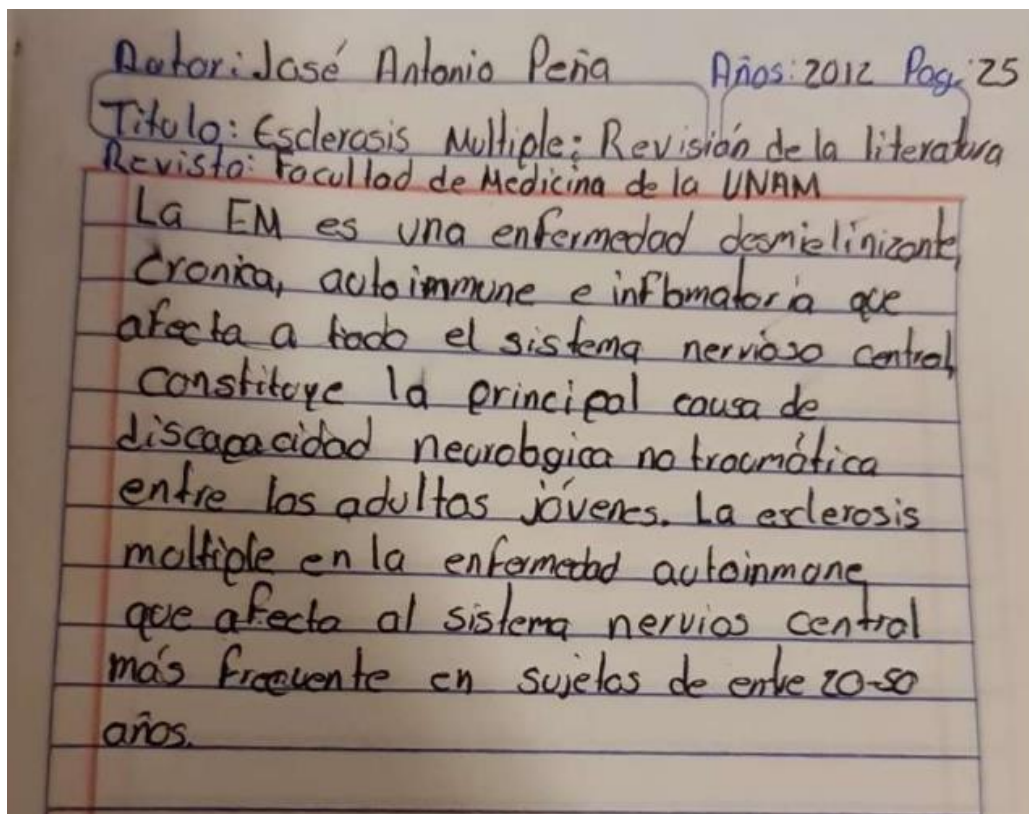 Autor: José Antonio Peña Años: 2012 Pag: 25
Titulo: Esclerosis Multiple: Revisión de la literatura
Revista: Facultad de Medicina de la UNAM
La EM es una enfermedad desmielinizante,
cronica, autoimmune e inflamatoria que
afecta a todo el sistema nervioso central,
constituye la principal causa de
discapacidad neurologica no traumática
entre los adultos jóvenes. La esclerosis
multiple en la enfermedad autoinmune
que afecta al sistema nervios central
más frecuente en sujetos de entre 20-50
años.